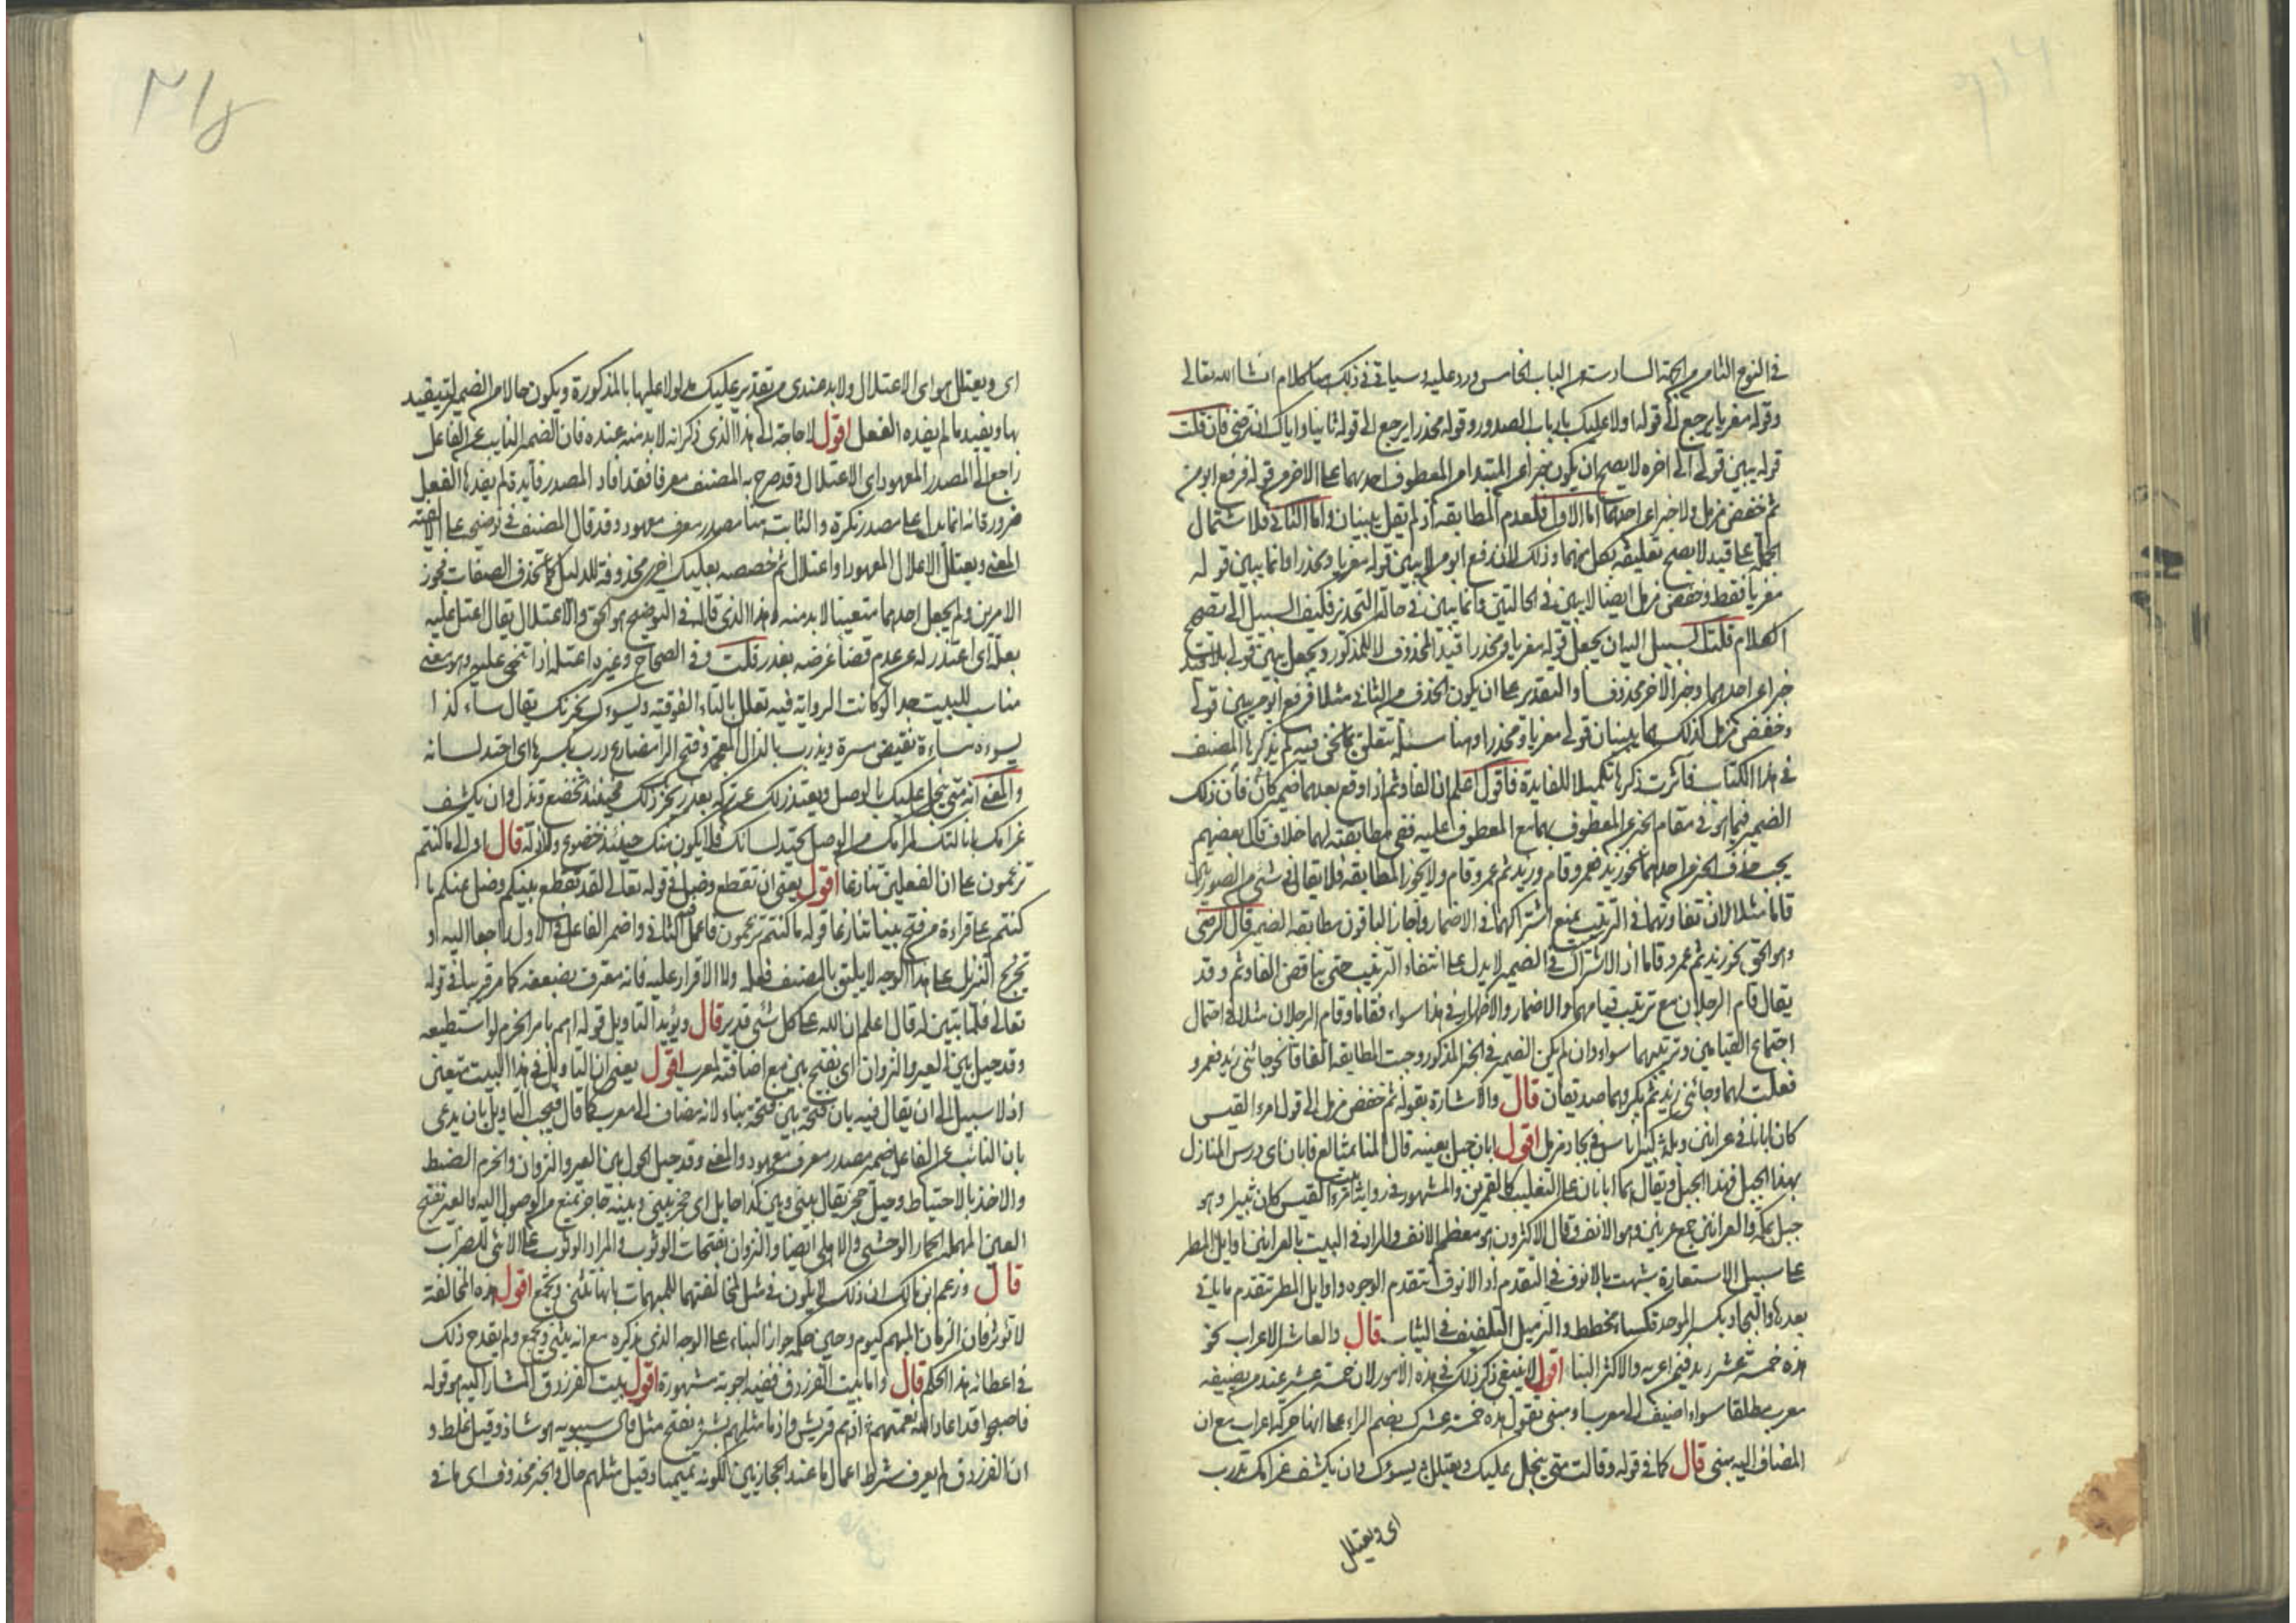 في النوع الثامن من الجهة السادسة من الباب الخامس ورد عليه وسياتي في ذلك هنا كلام انشا الله تعالى
وقوله مغريا يرجع الى قوله اولا عليك بارباب الصدور وقوله محذرا يرجع الى قوله ثانيا واياك ان ترضى فان قلت
قوله يبين قولي الى اخره لا يصح ان يكون خبرا عن المبتدا من المعطوف احدهما على الاخر من قوله فرفع ابو من
ثم خفض مزمل ولا خبرا عن احدهما اما الاول فلعدم المطابقة اذ لم يقل يبينان واما الثاني فلاشتمال
الجملة على قيد لا يصح تعليقه بكل منهما وذلك لان رفع ابو من لا يبين قوله مغريا ومحذرا وانما يبين قوله
مغريا فقط وخفض مزمل ايضا لا يبين في الحالتين وانما يبين في حالة التحذير فكيف السبيل الى تصحيح
الكلام قلت السبيل اليه ان يجعل قوله مغريا ومحذرا قيدا لمحذوف لا للمذكور ويجعل يبين قولي بلا قيد
خبرا عن احدهما وخبر الاخر محذوفا والتقدير على ان يكون الحذف من الثاني مثلا فرفع ابو من يبين قولي
وخفض مزمل كذلك هما يبينان قولي مغريا ومحذرا وهنا مسئلة تتعلق بما نحن فيه لم يذكرها المصنف
في هذا الكتاب فآثرت ذكرها تكميلا للفايدة فاقول اعلم ان الفا وثم اذا وقع بعدهما ضمير كان فان ذلك
الضمير فيما هو في مقام الخبر عن المعطوف بهما مع المعطوف عليه ففي مطابقته لهما خلاف قال بعضهم
يجب حذف الخبر من احدهما نحو زيد فعمرو قام وزيد ثم عمرو قام ولا يجوز المطابقة فلا يقال في شئ من الصورتين
قاما مثلا لان تفاوتهما في الترتيب يمنع اشتراكهما في الاضمار واجاز الباقون مطابقة الضمير قال الرضي
وهو الحق نحو زيد ثم عمرو قاما اذ الاشتراك في الضمير لا يدل على انتفاء الترتيب حتى يناقض الفا وثم وقد
يقال قام الرجلان مع ترتيب قيامهما والاضمار والاظهار في هذا سواء فقاما وقام الرجلان مثلان في احتمال
اجتماع القيامين وترتيبهما سواء وان لم يكن الضمير في الخبر المذكور وجبت المطابقة اتفاقا نحو جائني زيد فعمرو
فقلت لهما وجائني زيد ثم بكر وهما صديقان قال والاشارة بقوله ثم خفض مزمل الى قول امرء القيس
كان ابانا في عرانين وبله كبير اناس في بجاد مزمل اقول ابان جبل بعينه قال المنا بمتالع فابان اى درس المنازل
بهذا الجبل فهذا الجبل ويقال هما ابانان على التغليب كالقمرين والمشهور في رواية بيت امرء القيس كان ثبيرا وهو
جبل بمكة والعرانين جمع عرنين وهو الانف وقال الاكثرون هو معظم الانف والمراد في البيت بالعرانين اوايل المطر
على سبيل الاستعارة شبهت بالانوف في التقدم اذ الانوف تتقدم الوجوه واوايل المطر تتقدم ما ياتي
بعدها والبجاد بكسر الموحدة كساء مخطط والتزميل التلفيف في الثياب قال والعاشر الاعراب نحو
هذه خمسة عشر زيد فيمن اعربه والاكثر البنا اقول لا ينبغي ذكر ذلك في هذه الامور لان خمسة عشر عند من يضيفه
معرب مطلقا سواء اضيف الى معرب او مبني تقول هذه خمسة عشرك بضم الراء على انها حركة اعراب مع ان
المضاف اليه مبني قال كما في قوله وقالت متى يبخل عليك ويعتلل يسؤك وان يكشف غرامك تدرب
اى ويعتلل
اى ويعتلل هو اى الاعتلال ولا بد عندى من تقدير عليك مدلولا عليها بالمذكورة ويكون حالا من الضمير لتقيد
بها ويفيد ما لم يفده الفعل اقول لا حاجة الى هذا الذى ذكر انه لا بد منه عنده فان الضمير النايب عن الفاعل
راجع الى المصدر المعهود اى الاعتلال وقد صرح به المصنف معرفا فقد افاد المصدر فائدة لم يفدها الفعل
ضرورة انه انما يدل على مصدر نكرة والثابت هنا مصدر معرف معهود وقد قال المصنف في توضيحه على الالفية
المعنى ويعتلل الاعتلال المعهود او اعتلال ثم خصصه بعليك اخرى محذوفة للدليل كما تحذف الصفات فجوز
الامرين ولم يجعل احدهما متعينا لا بد منه وهذا الذى قاله في التوضيح هو الحق والاعتلال يقال اعتل عليه
بعلة اى اعتذر له عن عدم قضاء غرضه بعذر قلت وفي الصحاح وغيره اعتله اذا تجنى عليه وهو معنى
مناسب للبيت جدا لو كانت الرواية فيه تعتلل بالتاء الفوقية ويسوءك يحزنك يقال ساءه كذا
يسوءه مساءة نقيض سره ويذرب بالذال المعجمة وفتح الرا مضارع ذرب بكسرها اى احتد لسانه
والمعنى انه متى يبخل عليك بالوصل ويعتذر لك عن تركه بعذر يحزنك ذلك فحينئذ تخضع وتذل وان يكشف
غرامك بانالتك لمرامك من الوصل يحتد لسانك فلا يكون منك حينئذ خضوع ولا ذلة قال اولى ما كنتم
تزعمون على ان الفعلين تنازعا اقول يعنى ان تقطع وضل في قوله تعالى لقد تقطع بينكم وضل عنكم ما
كنتم على قراءة من فتح بينا تنازعا قوله ما كنتم تزعمون فاعمل الثاني واضمر الفاعل في الاول راجعا اليه او
تخريج التنزيل على هذا الوجه لا يليق بالمصنف فعله ولا الاقرار عليه فانه معترف بضعفه كما مر قريبا في قوله
تعالى فلما تبين له قال اعلم ان الله على كل شئ قدير قال ويؤيد التاويل قوله اهم بامر الحزم لو استطيعه
وقد حيل بين العير والنزوان اى بفتح بين مع اضافته لمعرب اقول يعنى ان التاويل في هذا البيت متعين
اذ لا سبيل الى ان يقال فيه بان فتحة بين فتحة بناء لانه مضاف الى معرب كما قال فيجب التاويل بان يدعى
بان النائب عن الفاعل ضمير مصدر معرف معهود والمعنى وقد حيل الحول بين العير والنزوان والحزم الضبط
والاخذ بالاحتياط وحيل حجز يقال بيني وبين كذا حايل اى حجز بيني وبينه حاجز يمنع من الوصول اليه والعير بفتح
العين المهملة الحمار الوحشي والاهلي ايضا والنزوان بفتحات الوثوب والمراد الوثوب على الانثى للضراب
قال وزعم ابن مالك ان ذلك لا يكون في مثل لمخالفتهما للمبهمات بانها تثنى وتجمع اقول هذه المخالفة
لا تؤثر فان الزمان المبهم كيوم وحين حكمه جواز البناء على الوجه الذى يذكره مع انه يثنى ويجمع ولم يقدح ذلك
في اعطائه هذا الحكم قال واما بيت الفرزدق ففيه اجوبة مشهورة اقول بيت الفرزدق المشار اليه هو قوله
فاصبحوا قد اعاد الله نعمتهم اذ هم قريش واذ ما مثلهم بشر بفتح مثل قال سيبويه هو شاذ وقيل غلط و
ان الفرزدق لم يعرف شرط اعمال ما عند الحجازيين لكونه تميميا وقيل مثلهم حال والخبر محذوف اى ما في